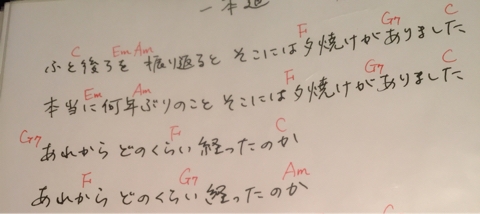 一本道
C Em Am F G7 C
ふと後ろを振り返ると そこには夕焼けがありました
Em Am F G7 C
本当に何年ぶりのこと そこには夕焼けがありました
G7 F C
あれから どのくらい経ったのか
F G7 Am
あれから どのくらい経ったのか